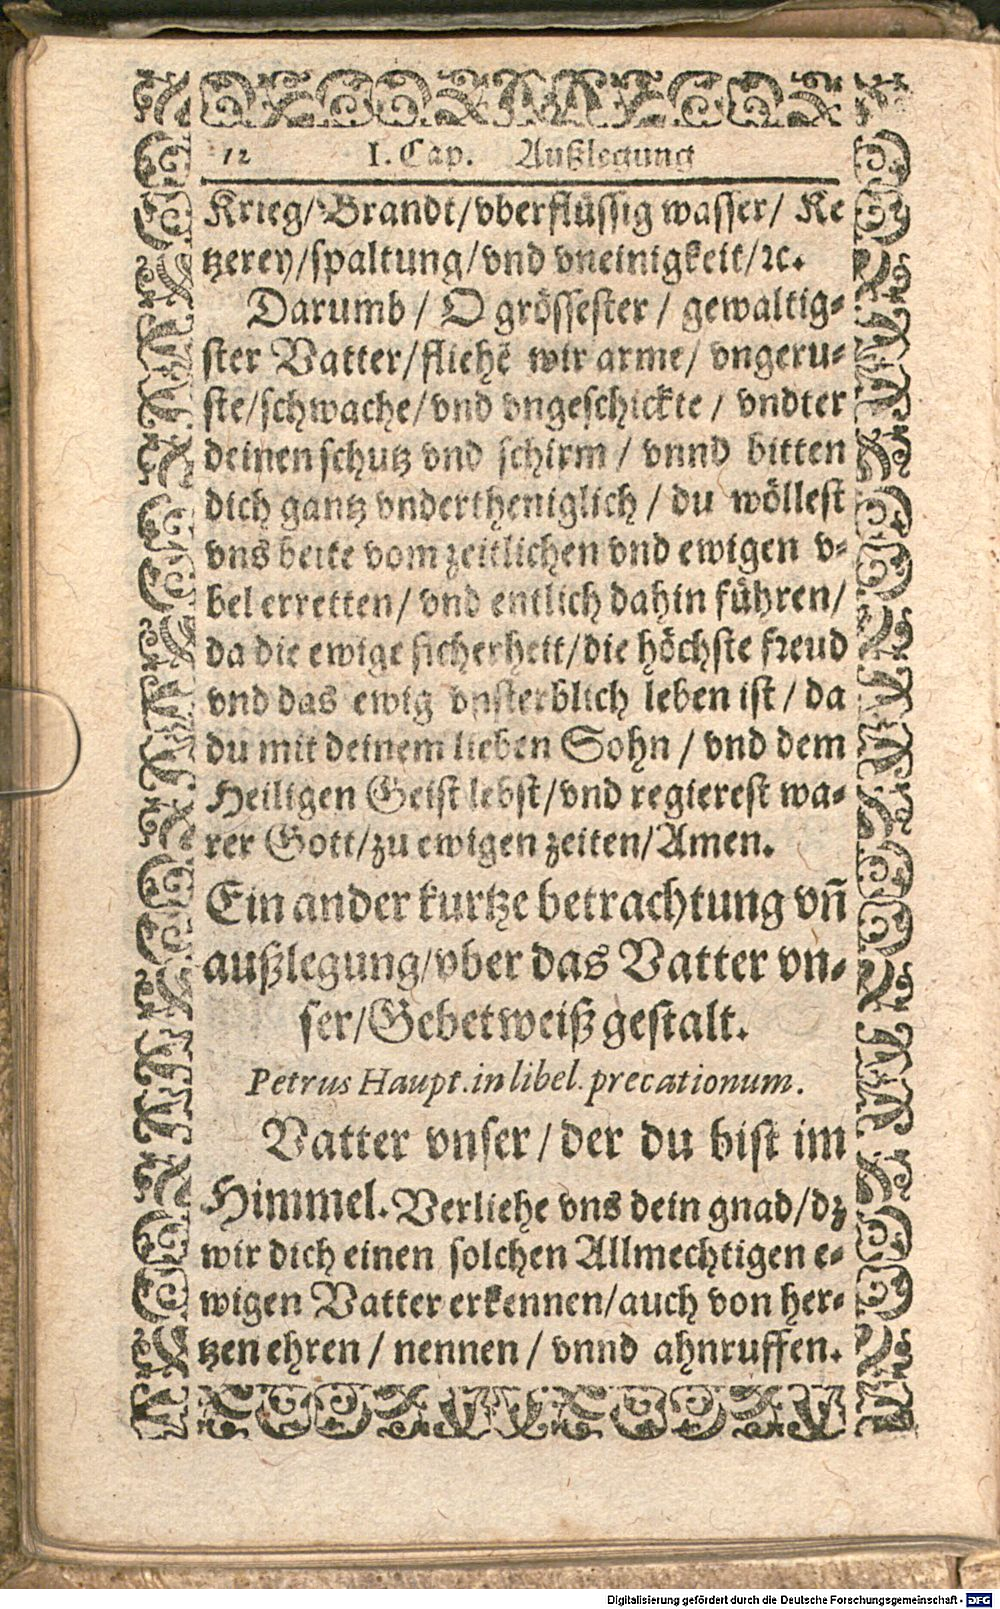 12 I. Cap. Außlegung
Krieg/ Brandt/vberflüssig wasser/ Ke
tzerey/spaltung/vnd vneinigkeit/ꝛc.
Darumb / O grössester / gewaltig-
ster Vatter/fliehẽ wir arme/ vngeru-
ste/schwache/vnd vngeschickte / vndter
deinen schutz vnd schirm / vnnd bitten
dich gantz vndertheniglich / du wöllest
vns beite vom zeitlichen vnd ewigen v-
bel erretten/ vnd entlich dahin führen/
da die ewige sicherheit/die höchste freud
vnd das ewig vnsterblich leben ist / da
du mit deinem lieben Sohn / vnd dem
Heiligen Geist lebst/vnd regierest wa-
rer Gott/zu ewigen zeiten/Amen.
Ein ander kurtze betrachtung vñ
außlegung/vber das Vatter vn-
ser/Gebetweiß gestalt.
Petrus Haupt. in libel. precationum.
Vatter vnser / der du bist im
Himmel. Verliehe vns dein gnad/dz
wir dich einen solchen Allmechtigen e-
wigen Vatter erkennen/auch von her-
tzen ehren / nennen / vnnd ahnruffen.
Digitalisierung gefördert durch die Deutsche Forschungsgemeinschaft - DFG